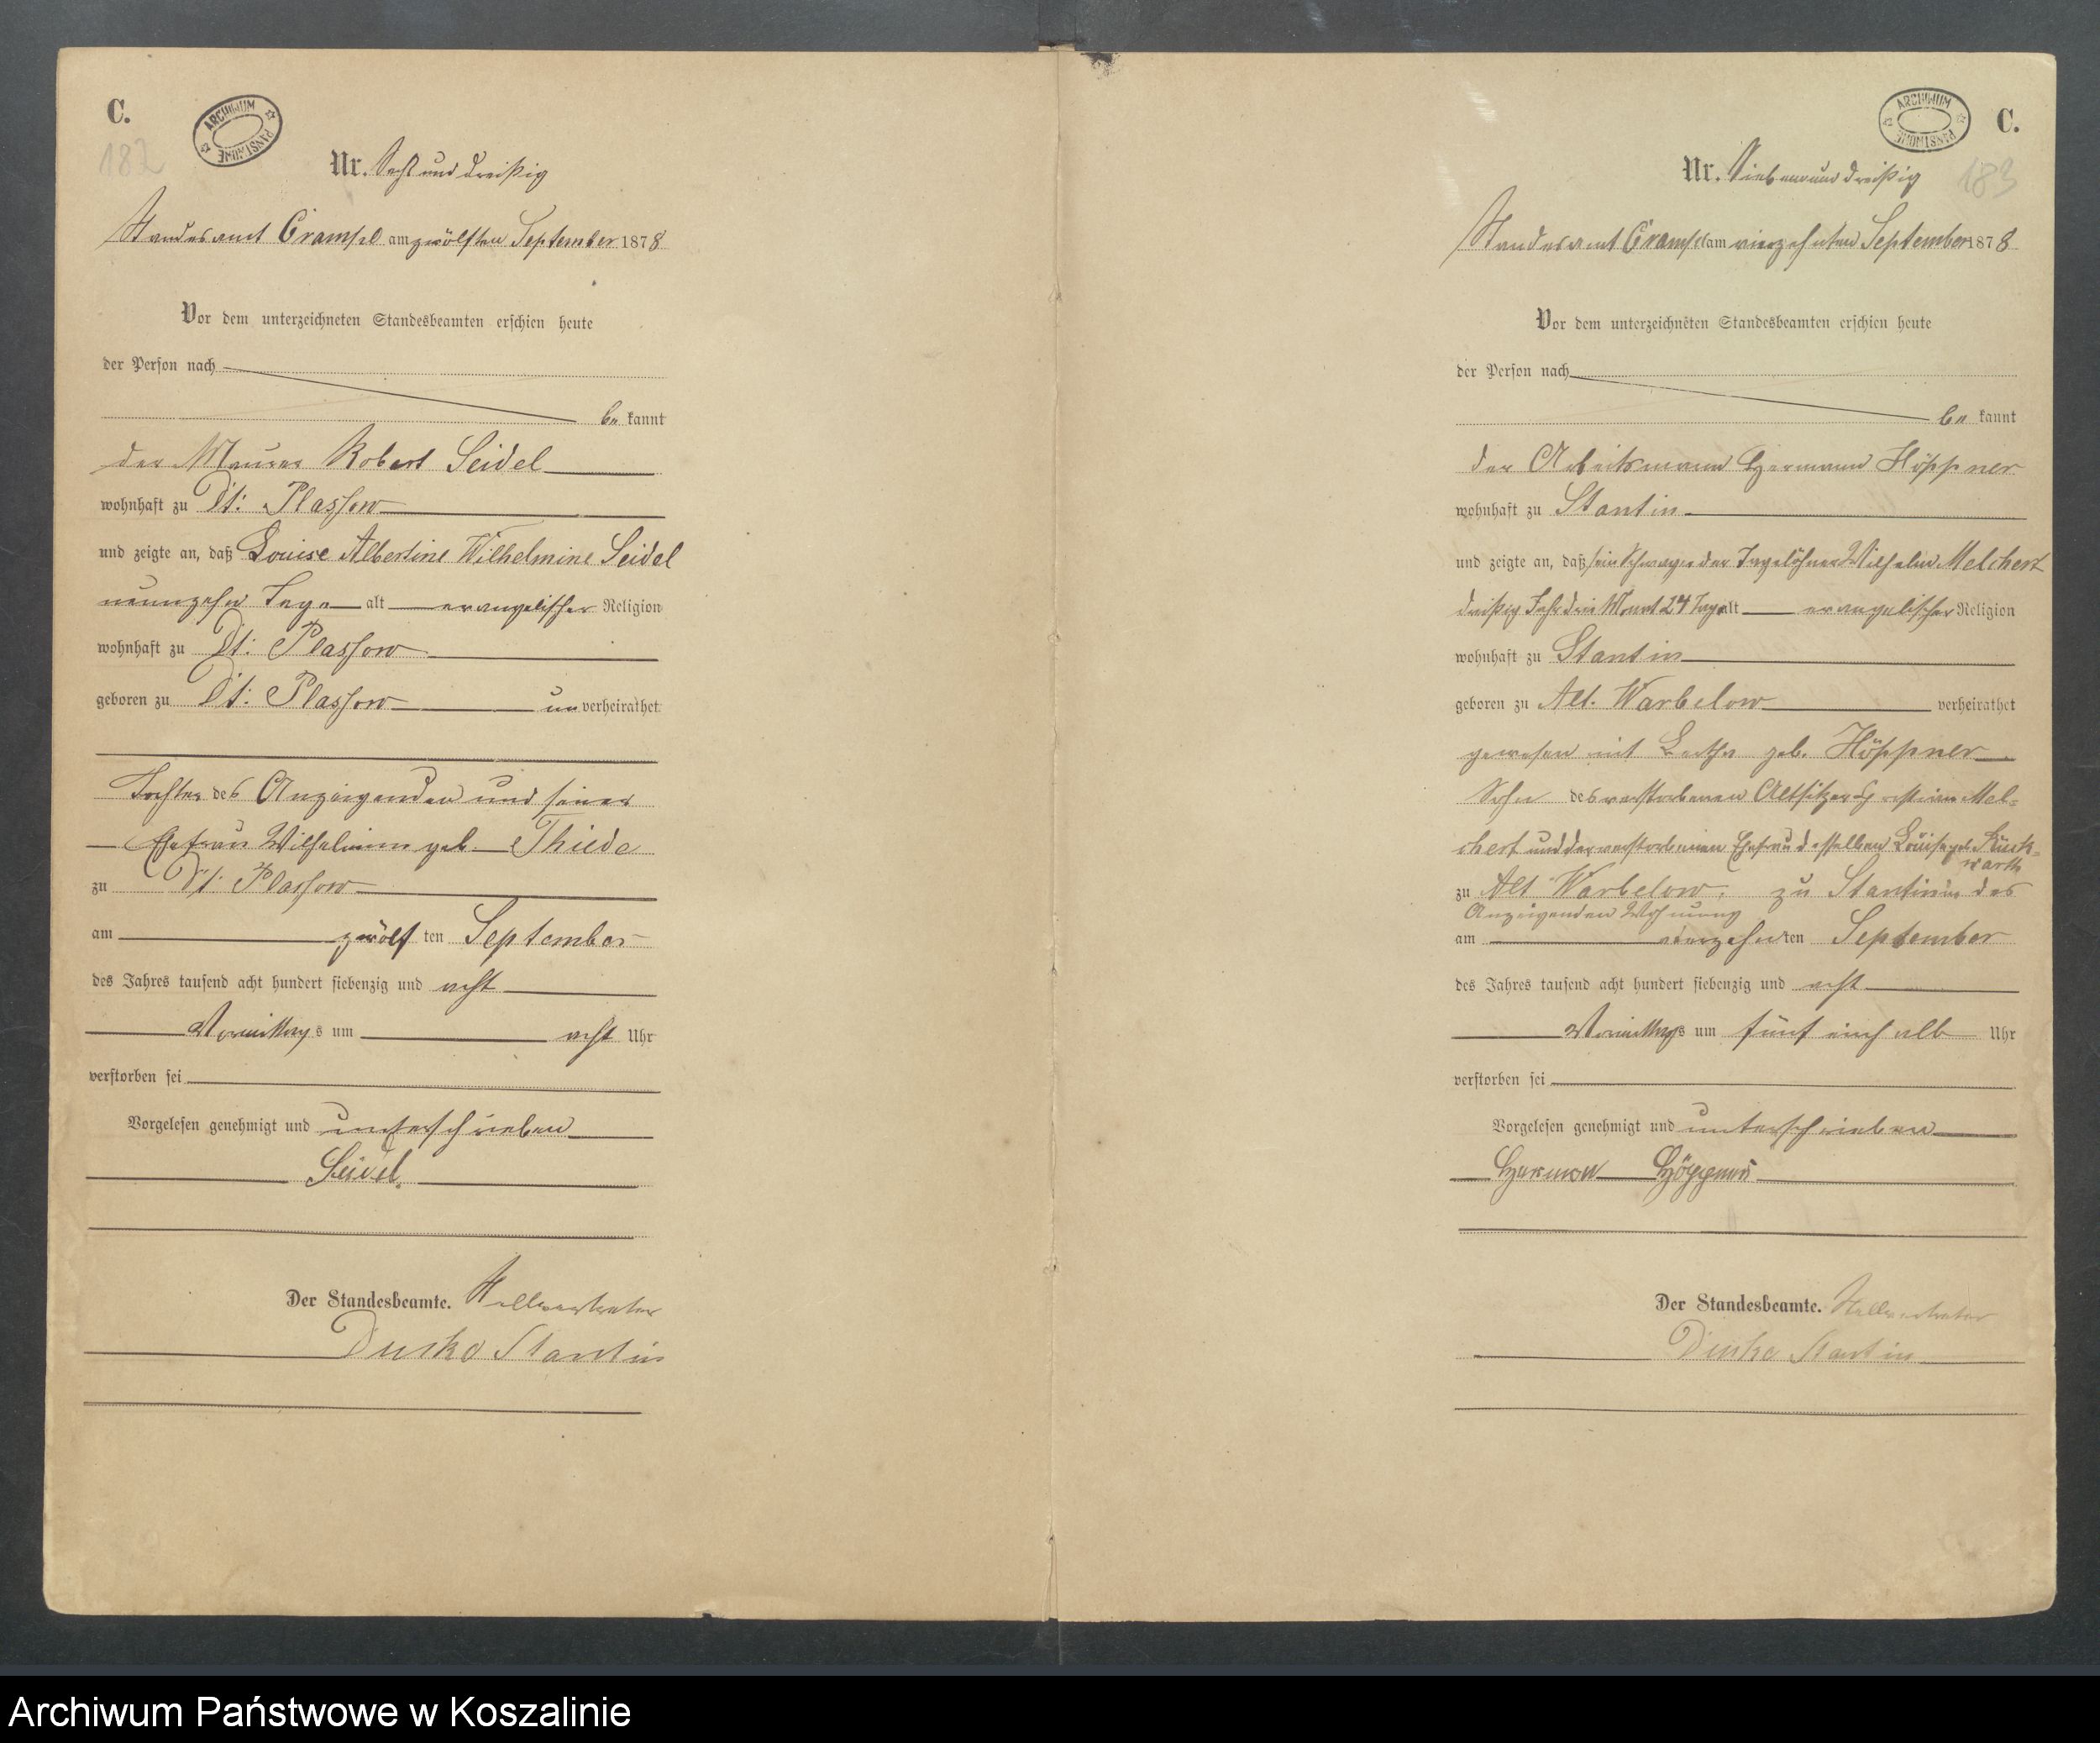 C.
ARCHIWUM PAŃSTWOWE
182
Nr. Sechs und dreißig
Standesamt Crampe am zwölften September 1878
Vor dem unterzeichneten Standesbeamten erschien heute
der Person nach
be kannt
der Maurer Robert Seidel
wohnhaft zu Dt: Plassow
und zeigte an, daß Louise Albertine Wilhelmine Seidel
neunzehn Tage alt evangelischer Religion
wohnhaft zu Dt: Plassow
geboren zu Dt: Plassow unverheirathet
Tochter des Anzeigenden und seiner
Ehefrau Wilhelmine geb. Thiede
zu Dt: Plassow
am zwölf ten September
des Jahres tausend acht hundert siebenzig und acht
Vormittags um acht Uhr
verstorben sei
Vorgelesen genehmigt und unterschrieben
Seidel.
Der Standesbeamte. Stellvertreter
Stantin
C.
ARCHIWUM PAŃSTWOWE
183
Nr. Siebenunddreißig
Standesamt am vierzehnten September 1878
Vor dem unterzeichneten Standesbeamten erschien heute
der Person nach
be kannt
der Arbeitsmann Hermann Höppner
wohnhaft zu Stantin
und zeigte an, daß sein Schwager der Tagelöhner Wilhelm Melchert
dreißig Jahr drei Monat 24 Tage alt evangelischer Religion
wohnhaft zu Stantin
geboren zu Alt. Warbelow verheirathet
gewesen mit geb. Höppner
Sohn des verstorbenen Altsitzer Mel=
chert und der verstorbenen Ehefrau desselben Louise geb.
warth
zu Alt Warbelow, zu Stantin in des
Anzeigenden Wohnung
am vierzehn ten September
des Jahres tausend acht hundert siebenzig und acht
Vormittags um fünf einhalb Uhr
verstorben sei
Vorgelesen genehmigt und unterschrieben
Herman Höppner
Der Standesbeamte. Stellvertreter
Stantin
Archiwum Państwowe w Koszalinie